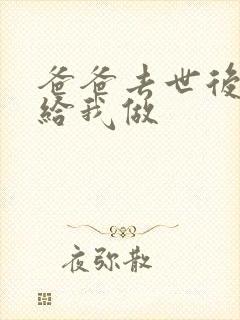 爸爸去世後
給我做
夜弥散